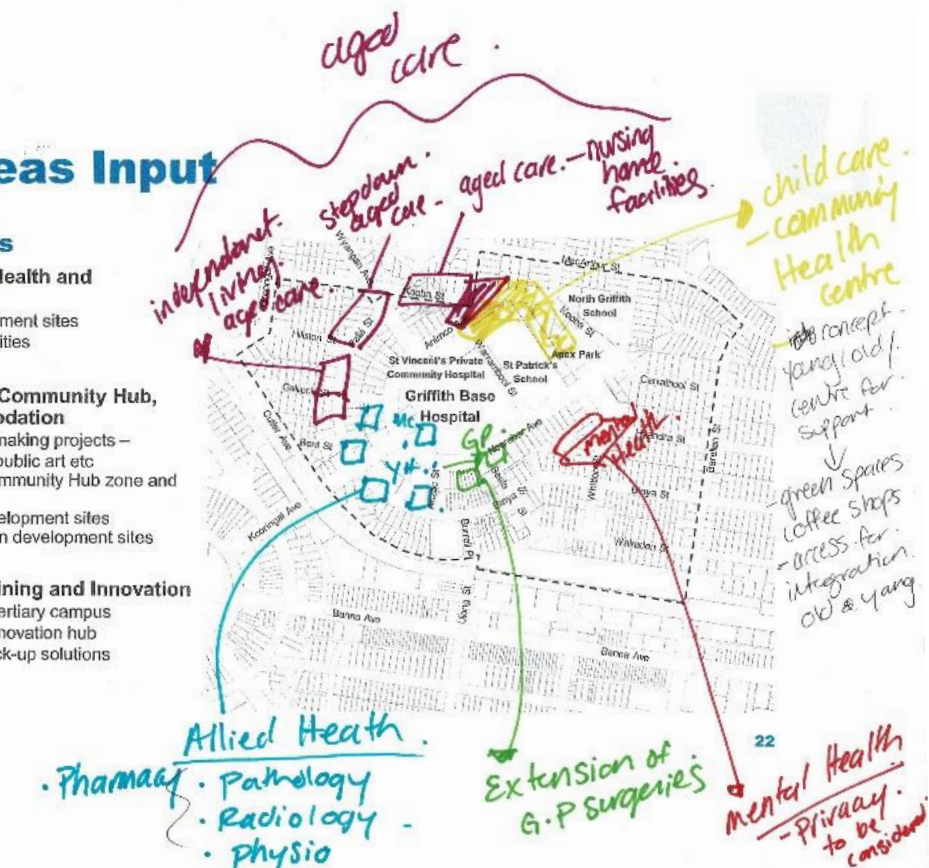 aged
care .
eas Input
s
Health and
ment sites
ities
Community Hub,
odation
making projects –
public art etc
mmunity Hub zone and
elopment sites
n development sites
ining and Innovation
ertiary campus
novation hub
ck-up solutions
stepdown .
aged
care -
aged care. - nursing
home .
facilities.
living.
aged care.
child care .
- community
Health
centre
concept.
centre for
support .
green spaces
coffee shops
- access for
integration.
Wyangan Ave
McArthur St
North Griffith
School
Noorla St
Apex Park
Animoo
Warrambool St
St Vincent's Private
Community Hospital
St Patrick's
School
Griffith Base
Hospital
Carrathool St
Binya St
Wakaden St
Barellan St
Kooringal Ave
Cutler Ave
Burrell Pl
Banna Ave
Banna Ave
GP.
mental
Health
22
Allied Heath .
. Pharmacy
. Pathology
. Radiology -
. physio
Extension of
G.P surgeries
mental Health
- Privacy.
to be
considered